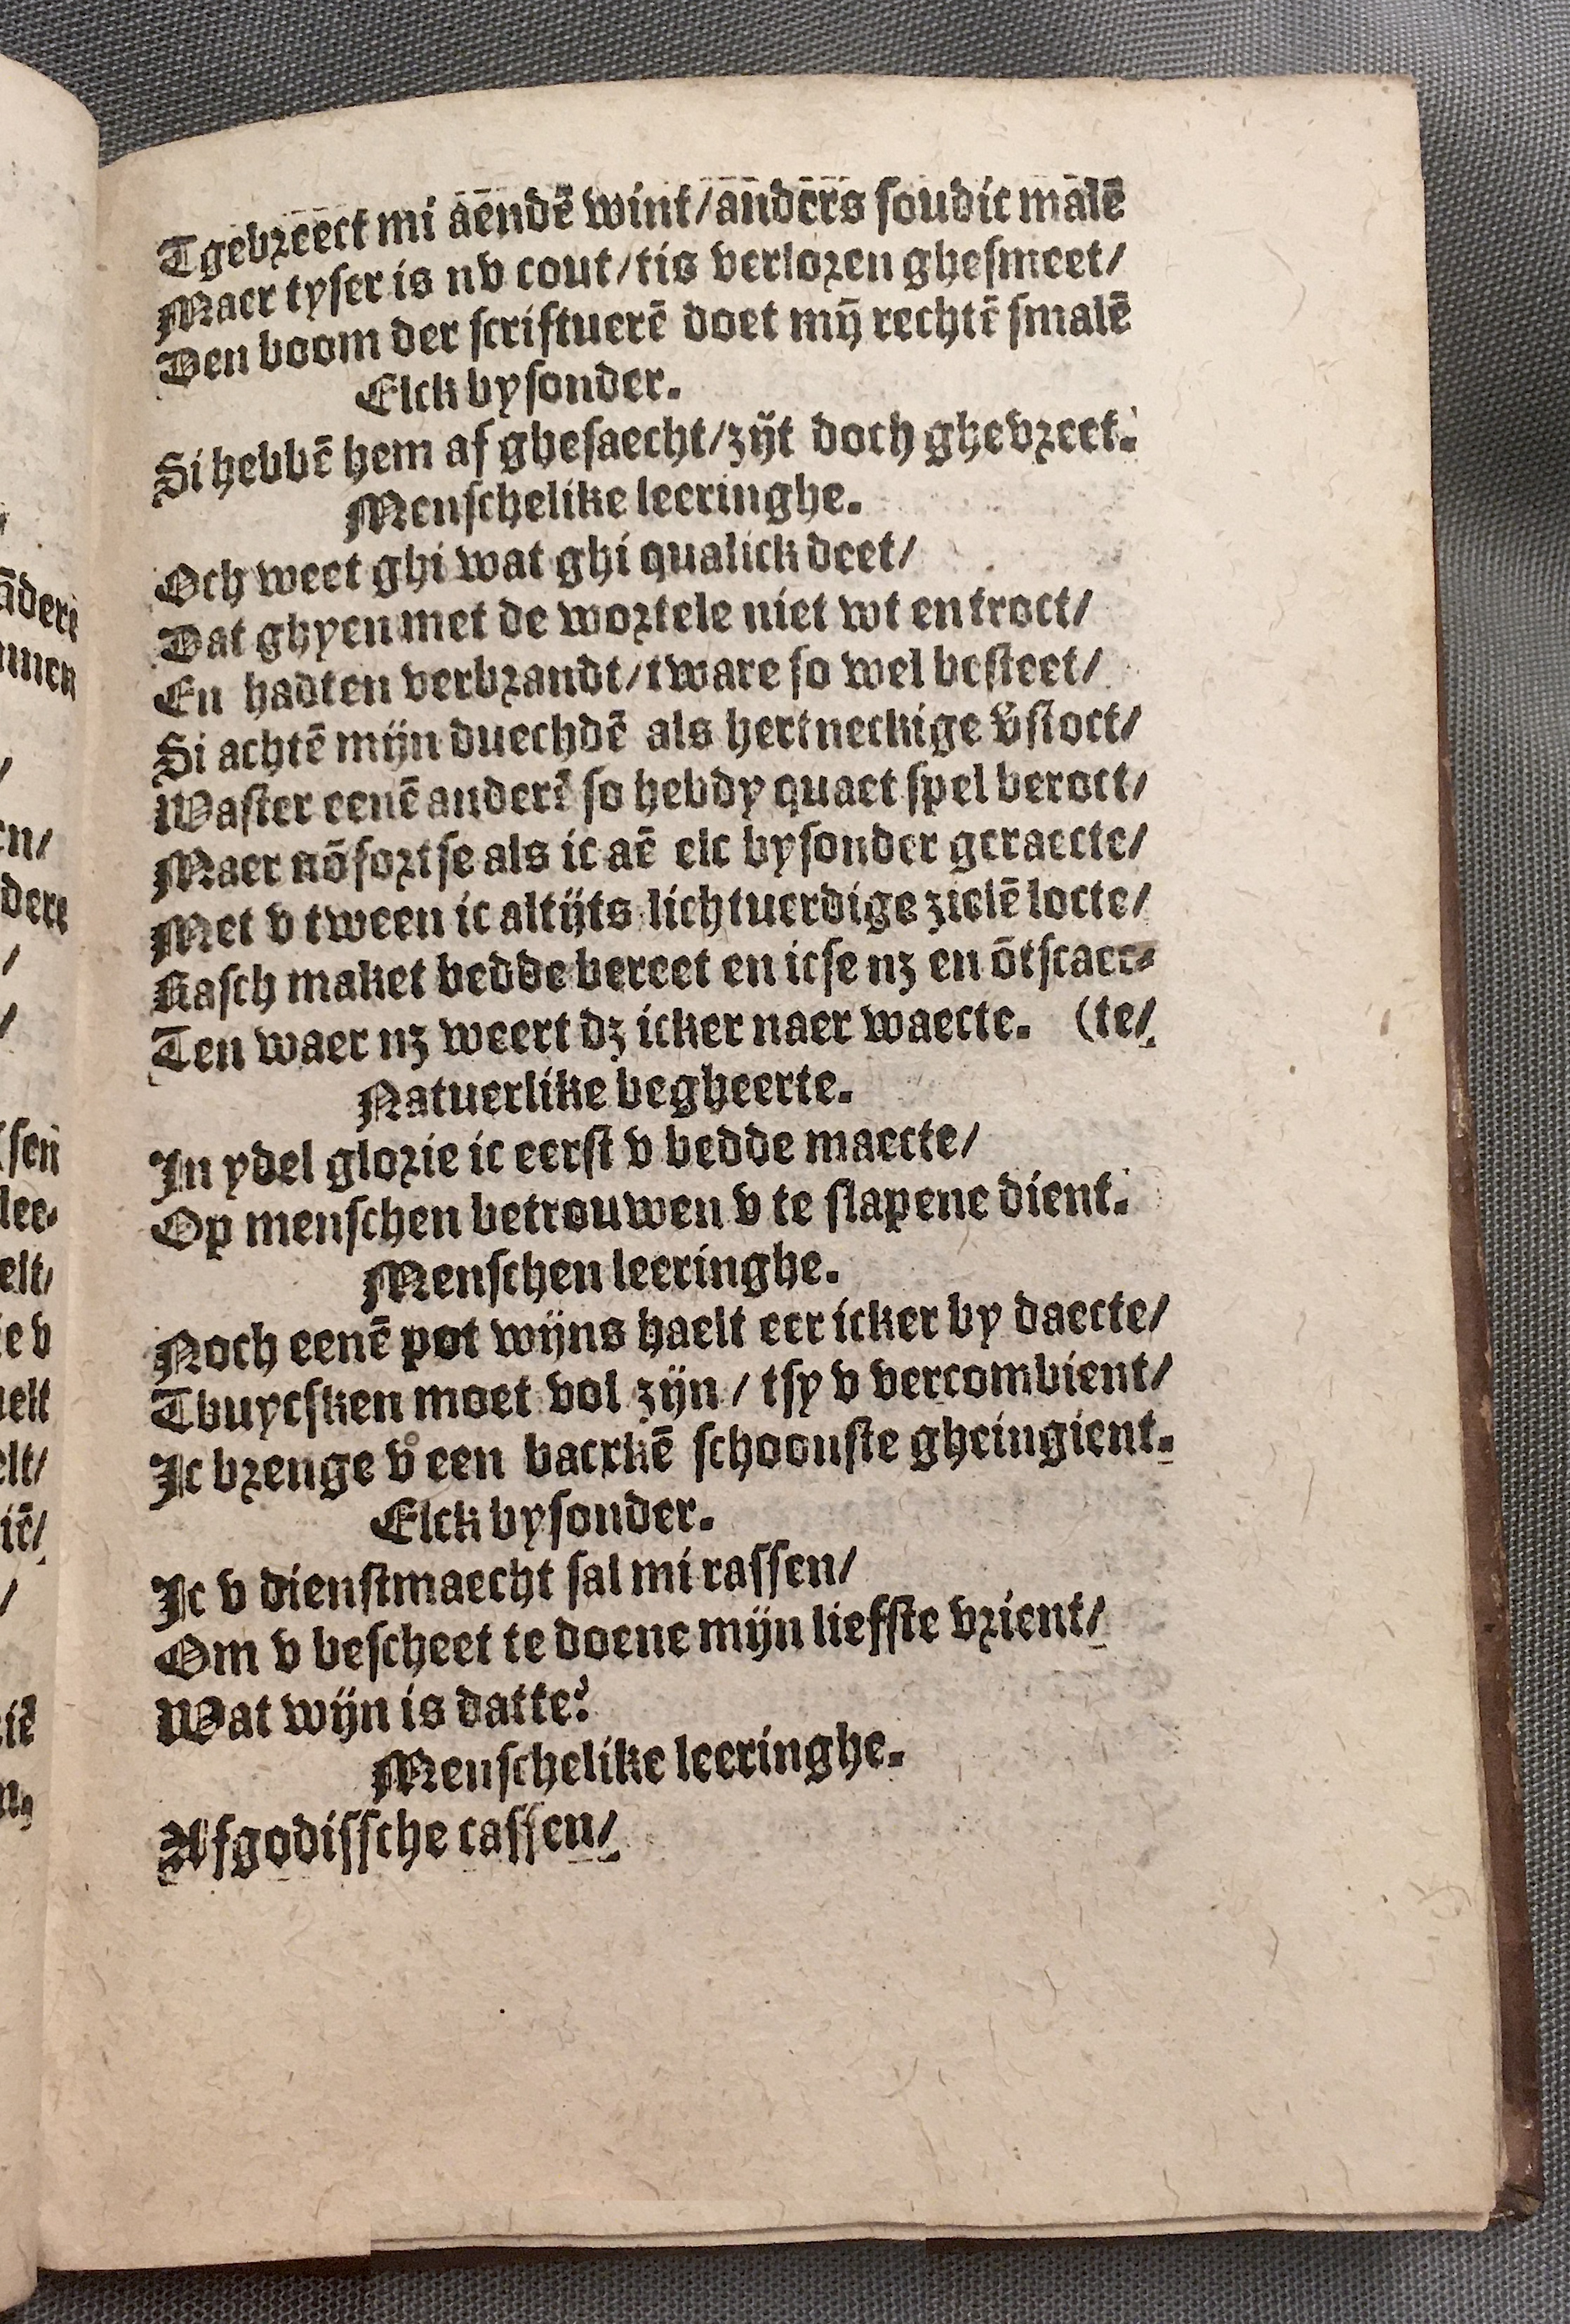 Tgebreect mi aendē wint/anders soudic malē
Maer tyser is nv cout/tis verloren ghesmeet/
Den boom der scriftuerē doet mȳ rechtē smalē
Elck bysonder.
Si hebbē hem af ghesaecht/zijt doch ghevreet.
Menschelike leeringhe.
Och weet ghi wat ghi qualick deet/
Dat ghyen met de wortele niet wt en troct/
En hadten verbrandt/tware so wel besteet/
Si achtē mijn duechdē als hertneckige v̄stoct/
Waster eenē anderē so hebdy quaet spel beroct/
Maer nō fortse als ic aē elc bysonder geraecte/
Met v tween ic altijts lichtuerdige zielē locte/
Rasch maket bedde bereet en icse nz en ōtscaec-
Ten waer nz weert dz icker naer waecte. (te/
Natuerlike begheerte.
In ydel glorie ic eerst v bedde maecte/
Op menschen betrouwen v te slapene dient.
Menschen leeringhe.
Noch eenē pot wijns haelt eer icker by daecte/
Tbuycsken moet vol zijn / tsy v vercombient/
Ic brenge v een backē schoonste gheingient.
Elck bysonder.
Ic v dienstmaecht sal mi rassen/
Om v bescheet te doene mijn liefste vrient/
Wat wijn is datte?
Menschelike leeringhe.
Afgodissche cassen/
āderē
nnen
/
en/
dere
/
/
sen
lee-
elt/
ie v
uelt
elt/
iē/
/
iē
n,